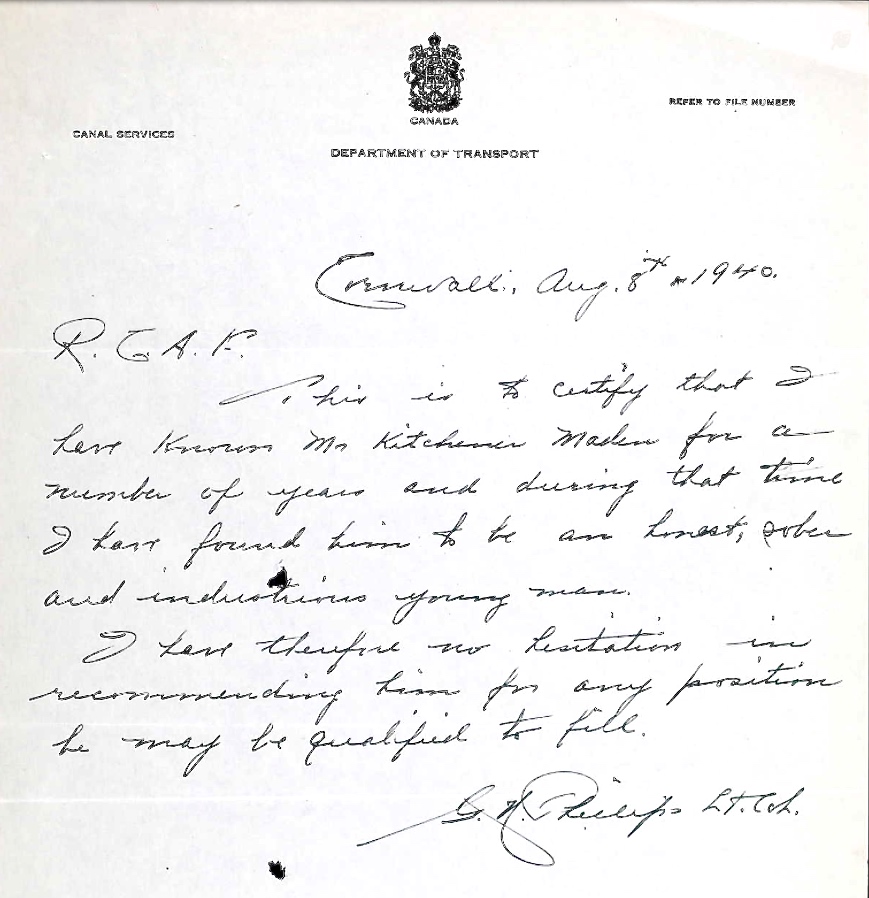 CANADA
REFER TO FILE NUMBER
CANAL SERVICES
DEPARTMENT OF TRANSPORT
Cornwall, Aug. 8th 1940.
R. C. A. F.
This is to certify that I
have known Mr Kitchener Maden for a
number of years and during that time
I have found him to be an honest, sober
and industrious young man.
I have therefore no hesitation in
recommending him for any position
he may be qualified to fill.
G. Phillips Lt. Col.